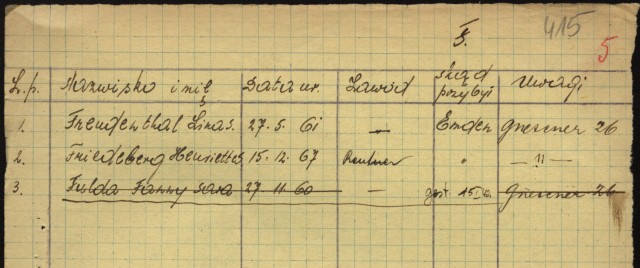 F.
415
5
L.p. Nazwisko i imię Data ur. Zawód skąd przybył Uwagi
1. Freudenthal Lina S. 27. 5. 61 — Emden Gnesener 26
2. Friedeberg Henriette S. 15. 12. 67 Rentner " — 11 —
3. Fulda Fanny Sara 27 11. 60 — 15 Gnesener 26